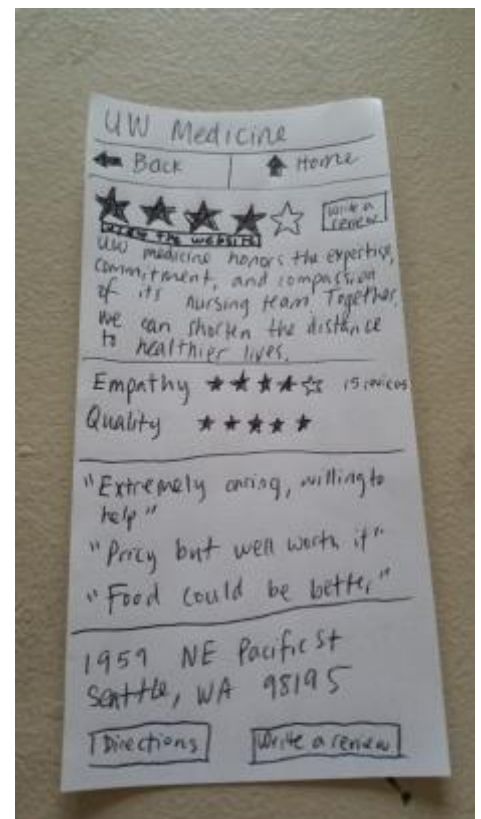 UW Medicine
Back Home
Write a
review
View the website
UW medicine honors the expertise,
commitment, and compassion
of its nursing team Together,
we can shorten the distance
to healthier lives.
Empathy 15 reviews
Quality
"Extremely caring, willing to
help"
"Pricy but well worth it"
"Food could be better"
1959 NE Pacific St
Seattle, WA 98195
Directions Write a review